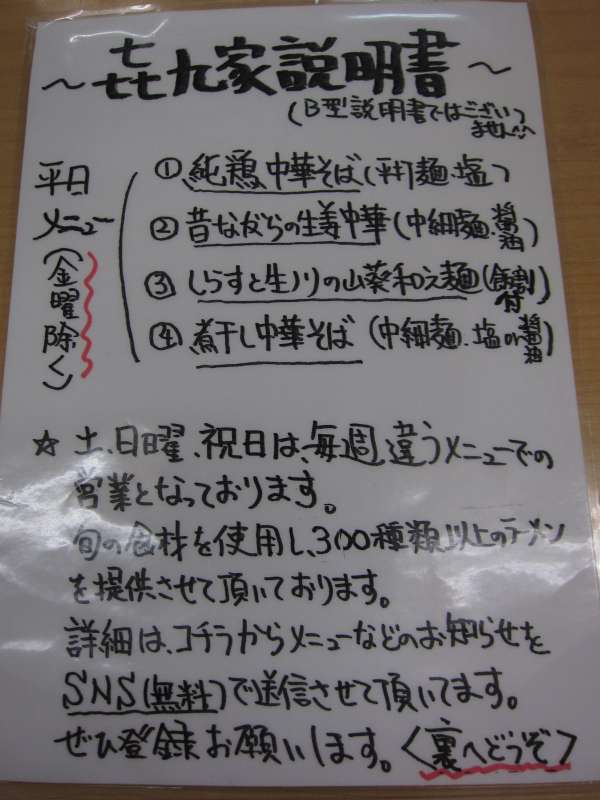 ～㐂九家説明書～
(B型説明書ではござい
ません!!)
平日
メニュー
(金曜除く)
① 純鶏中華そば(平打麺、塩)
② 昔ながらの生姜中華(中細麺、醤油)
③ しらすと生ノリの山葵和え麺(飯割付)
④ 煮干し中華そば(中細麺、塩or醤油)
☆ 土、日曜、祝日は、毎週違うメニューでの
営業となっております。
旬の食材を使用し、300種類以上のラーメン
を提供させて頂いております。
詳細は、コチラからメニューなどのお知らせを
SNS(無料)で送信させて頂いてます。
ぜひ登録お願いします。〈裏へどうぞ〉